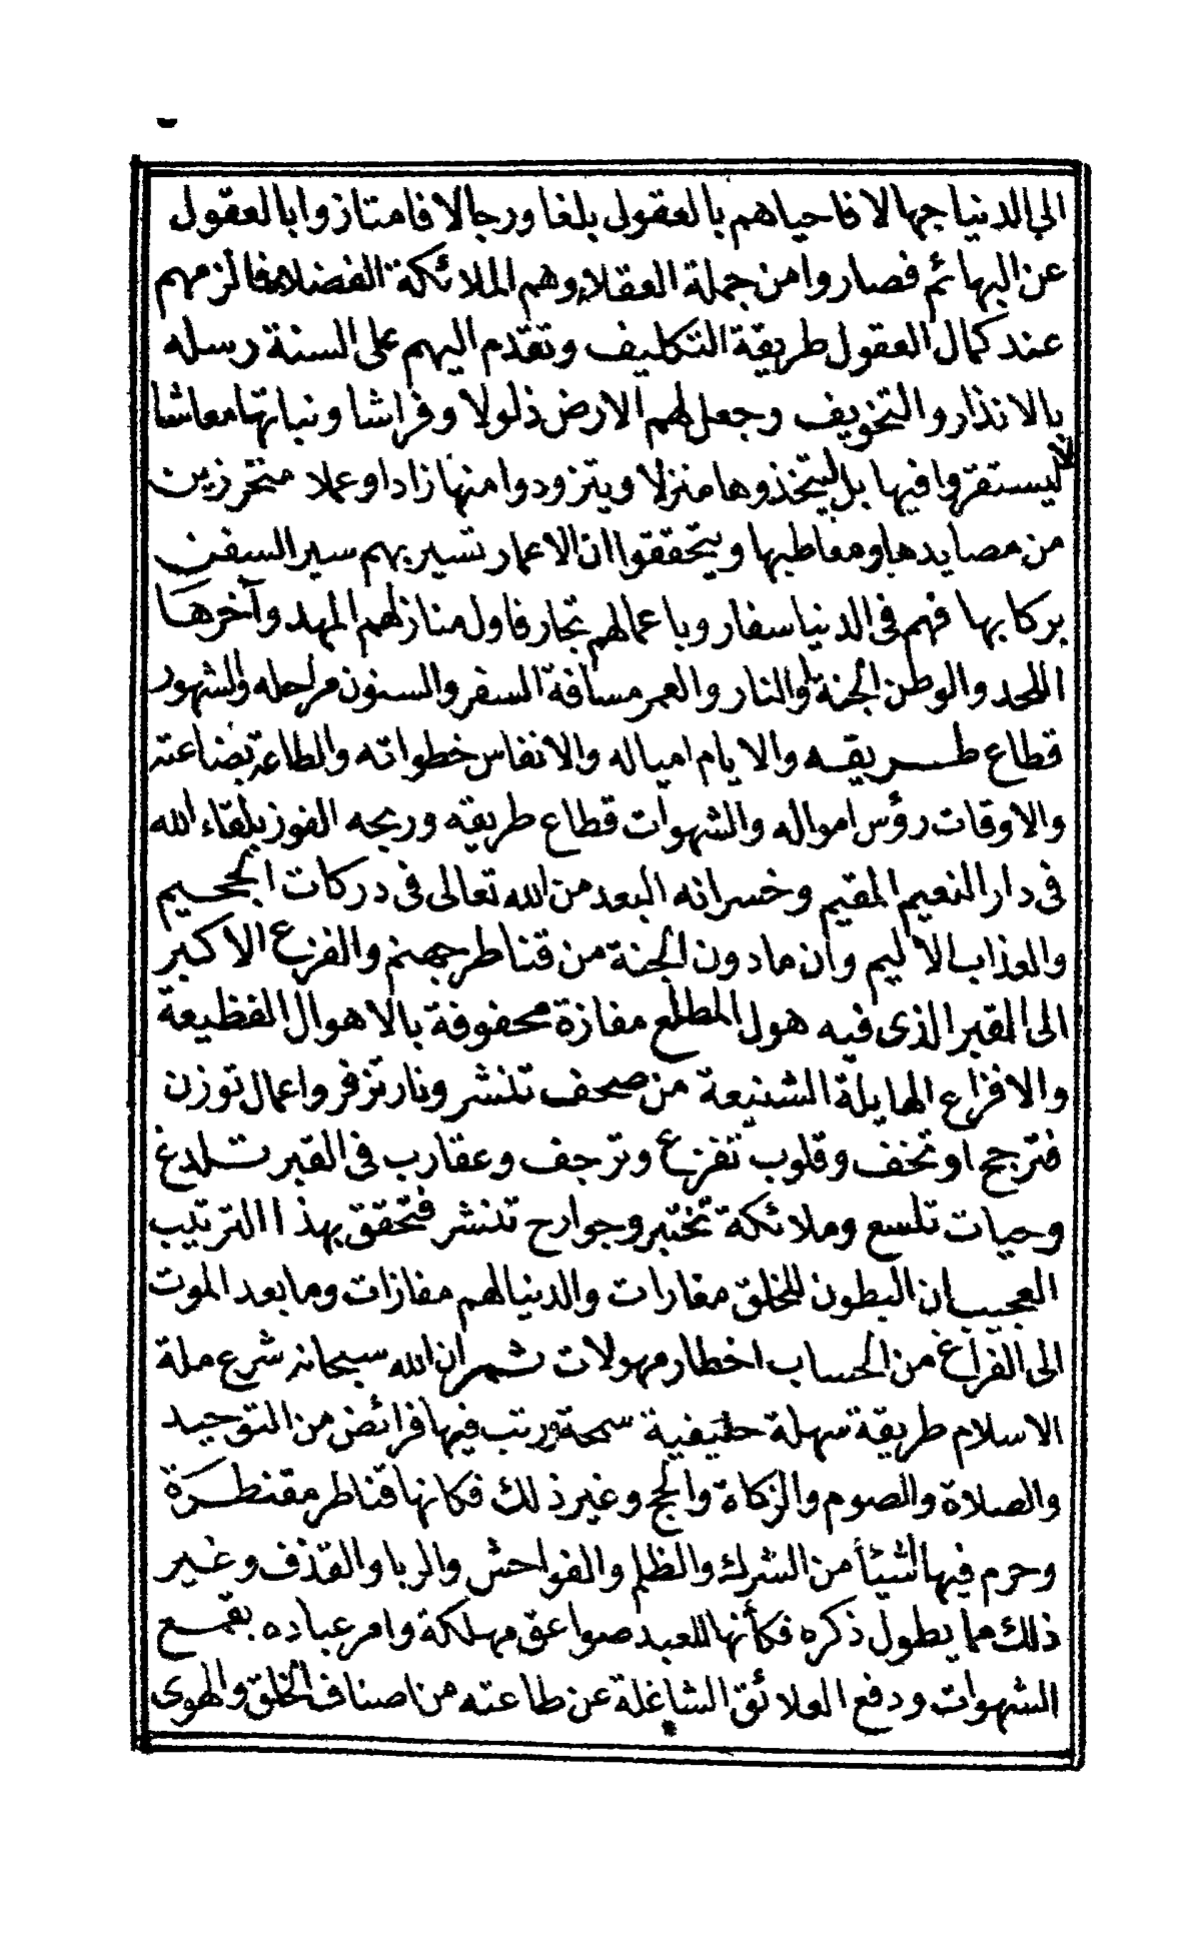 الى الدنيا جهالا فاحياهم بالعقول بلغا ورجالا فامتازوا بالعقول
عن البهائم فصاروا من جملة العقلاء وهم الملائكة الفضلاء فالزمهم
عند كمال العقول طريقة التكليف وتقدم اليهم على السنة رسله
بالانذار والتخويف وجعل لهم الارض ذلولا وفراشا ونباتها معاشا
لا ليستقروا فيها بل ليتخذوها منزلا ويتزودوا منها زادا وعملا متحرزين
من مصايدها ومعاطبها ويتحققوا ان الاعمار تسير بهم سير السفن
بركابها فهم فى الدنيا سفار وباعمالهم تجار فاول منازلهم المهد وآخرها
اللحد والوطن الجنة والنار والعمر مسافة السفر والسنون مراحله والشهور
قطاع طريقه والايام امياله والانفاس خطواته والطاعة بضاعته
والاوقات رؤس امواله والشهوات قطاع طريقه وربحه الفوز بلقاء الله
فى دار النعيم المقيم وخسرانه البعد من الله تعالى فى دركات الجحيم
والعذاب الاليم وان مادون الجنة من قناطر جهنم والفزع الاكبر
الى القبر الذى فيه هول المطلع مفازة محفوفة بالاهوال الفظيعة
والافزاع الهايلة الشنيعة من صحف تنشر ونار تزفر واعمال توزن
فترجح او تخف وقلوب تفزع وترجف وعقارب فى القبر تلدغ
وحيات تلسع وملائكة تختبر وجوارح تنشر فتحقق بهذا الترتيب
العجيب ان البطون للخلق مغارات والدنيا لهم مفازات وما بعد الموت
الى الفراغ من الحساب اخطار مهولات ثم ان الله سبحانه شرع ملة
الاسلام طريقة سهلة حنيفية سمحة ورتب فيها فرائض من التوحيد
والصلاة والصوم والزكاة والحج وغير ذلك فكانها قناطر مقنطرة
وحرم فيها اشيئا من الشرك والظلم والفواحش والربا والقذف وغير
ذلك مما يطول ذكره فكأنها للعبد صواعق مهلكة وامر عباده بقمع
الشهوات ودفع العلائق الشاغلة عن طاعته من اصناف الخلق والهوى